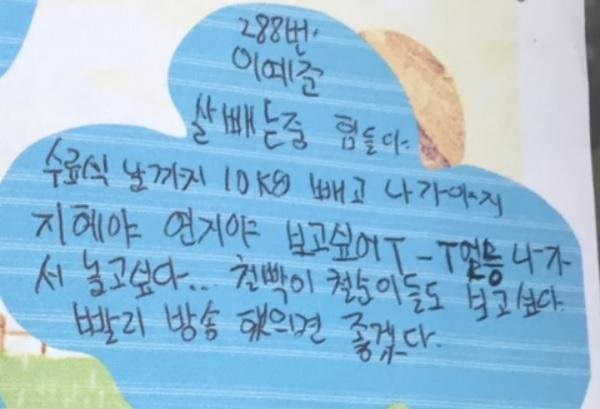 288번.
이예준
살빼는중 힘들다.
수료식 날까지 10KG 빼고 나가야지
지혜야 연지야 보고싶어T-T얼릉 나가
서 놀고싶다... 철빡이 철순이들도 보고싶다.
빨리 방송 했으면 좋겠다.